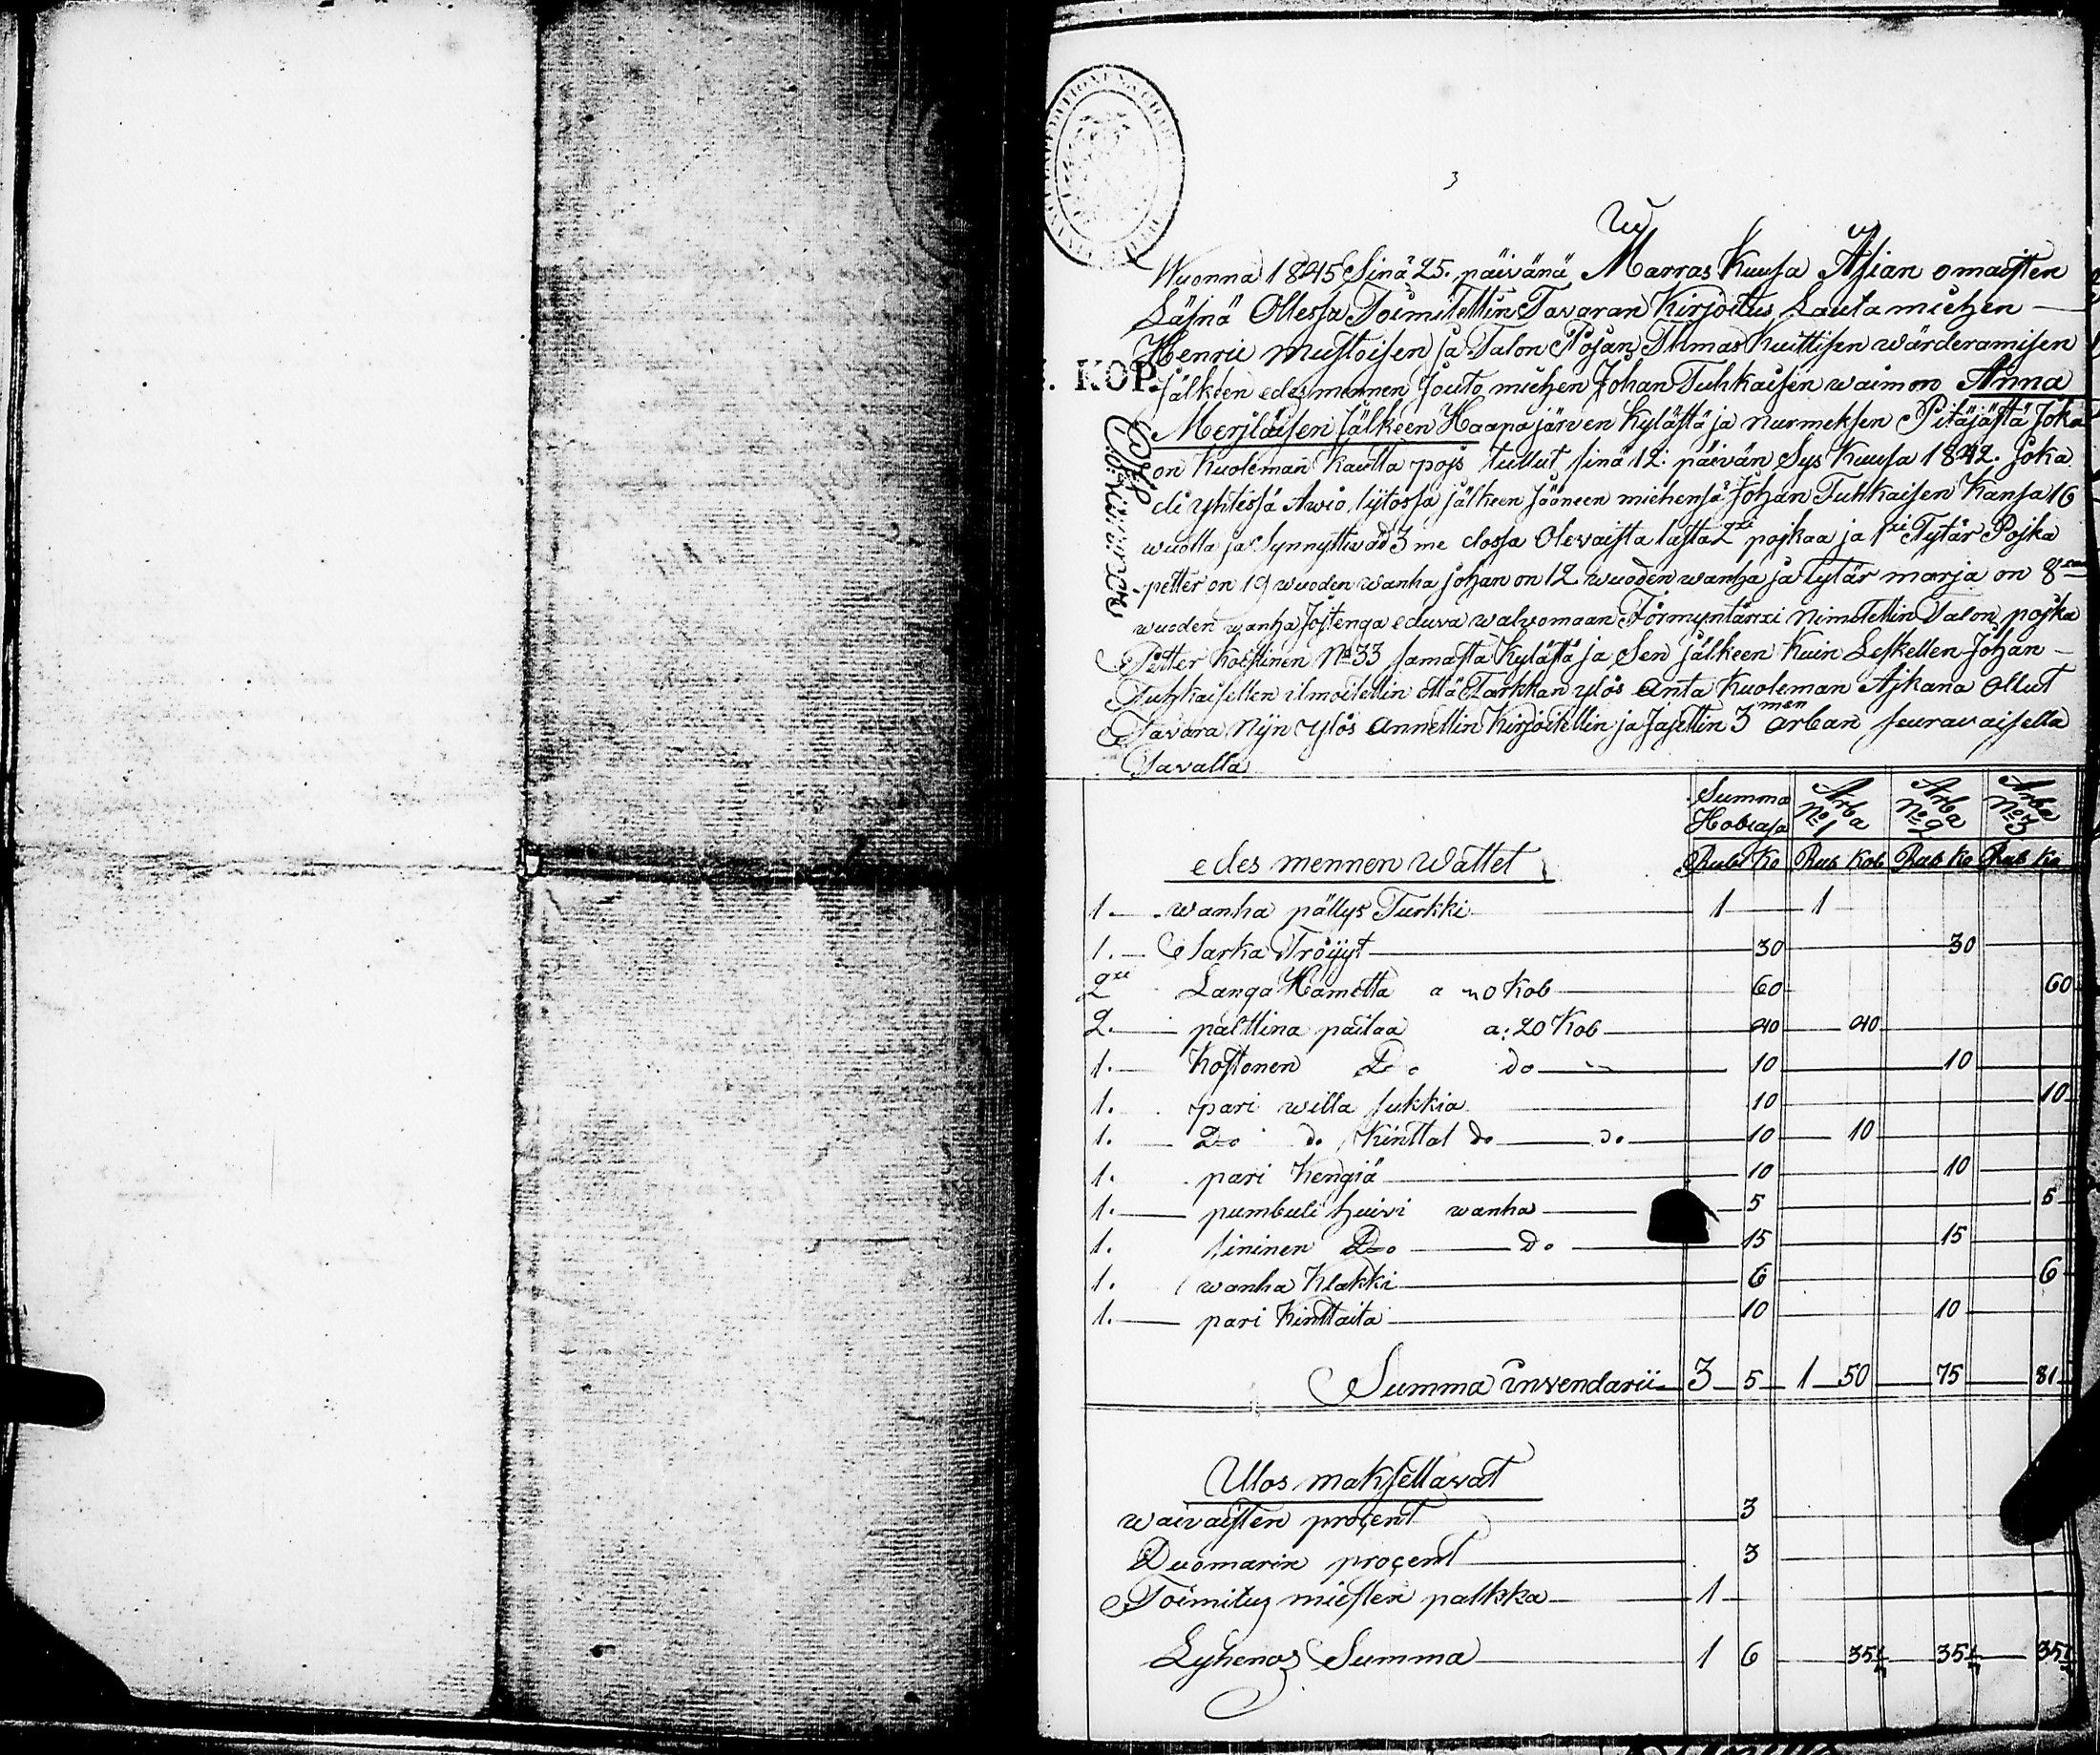 3
Wuonna 1845 Sinä 25. päivänä Marras Kuusa Asian omaisten
Läsnä Ollessa Toimitettin Tavaran Kirjoitus Lautamiehen
Henric Mustoisen ja Talon Pojan Thmas Kuittisen wärderamisen
. KOP.
jälkeen edesmennen Jouto miehen Johan Tuhkaisen waimon Anna
Merjläisen Jälkeen Haapajärven Kylästä ja nurmeksen Pitäjästä Joka
on Kuoleman kautta pojs tullut sinä 12: päivän Sys Kuusa 1842. joka
eli yhtessä Awio lijtossa jälkeen Jääneen miehensä Johan Tuhkaisen Kansa 16
wuotta ja Synnyttiwäd 3 me elossa Olevaista lasta 2xi pojkaa ja 1xi Tytär Pojka
petter on 19 wuoden wanha johan on 12 wuoden wanha ja tytär marja on 8
wuoden wanha Joitenga eduva walvomaan Förmyntärixi Nimitettin Talon pojka
Petter Koistinen No 33 samasta Kylästä ja Sen jälkeen Kuin Leskellen Johan
Tuhkaisellen ilmoitettin että Tarkkan ylös Anta Kuoleman Ajkana Ollut
Tavara Nijn Ylös Annettin Kirjoitettin ja Jajettin 3men Arban seuravaisella
Tavalla
Summa Hobiasa Arba No 1 Arba No 2 Arba No 3
edes mennen Wattet Rub Ko Rub Kob Rub Ko Rub Ko
1. wanha pällys Turkki 1 1
1. Sarka Tröijyt 30 30
2xi Langa Hametta a 30 Kob 60 60
2. palttina paitaa a: 20 Kob 40 40
1. Kostonen Do do 10 10
1. pari willa sukkia 10 10
1. Do do Kinttal do do 10 10
1. pari Kengiä 10 10
1. pumbuli huivi wanha 5 5
1. sininen Do Do 15 15
1. wanha Klakki 6 6
1. pari Kinttaita 10 10
Summa invendarii 3 5 1 50 75 81
Ulos maksettavat
waivaisten proçent 3
Duomarin proçent 3
Toimitus miesten palkka 1
Lyhenos Summa 1 6 35 1/3 35 1/3 35 1/3